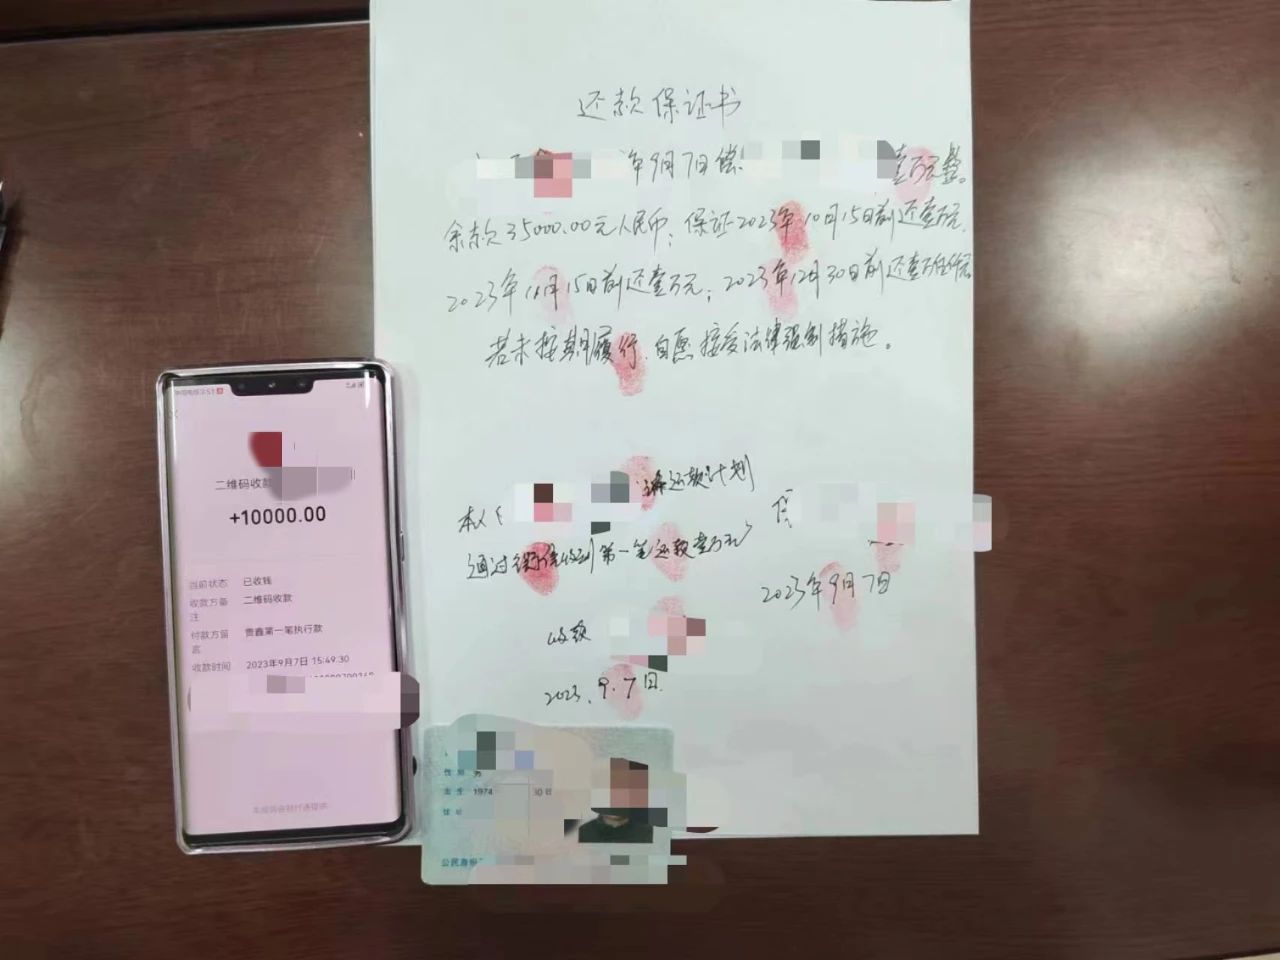 还款保证书
年9月7日偿 壹万元整。
余款35000.00元人民币；保证2023年10月15日前还壹万元，
2023年11月15日前还壹万元；2023年12月30日前还壹万伍仟元
若未按期履行，自愿接受法律强制措施。
本人 还款计划
通过微信收到第一笔还款壹万元
收款
2023.9.7日.
2023年9月7日
二维码收款
+10000.00
当前状态 已收钱
收款方备注 二维码收款
付款方留言 贵鑫第一笔执行款
收款时间 2023年9月7日 15:49:30
本服务由财付通提供
性别 男
出生 1974 30日
住址
公民身份